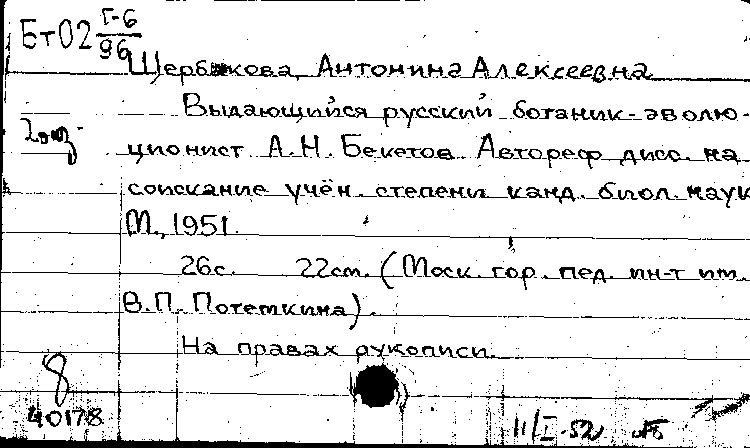 Бт02 Г-6/96
Щербакова, Антонина Алексеевна
Выдающийся русский ботаник-эволю-
ционист А.Н. Бекетов. Автореф. дисс. на
соискание учён. степени канд. биол. наук
М., 1951.
26с. 22см. (Моск. гор. пед. ин-т им.
В.П. Потемкина).
На правах рукописи.
8
40178
11/I-52